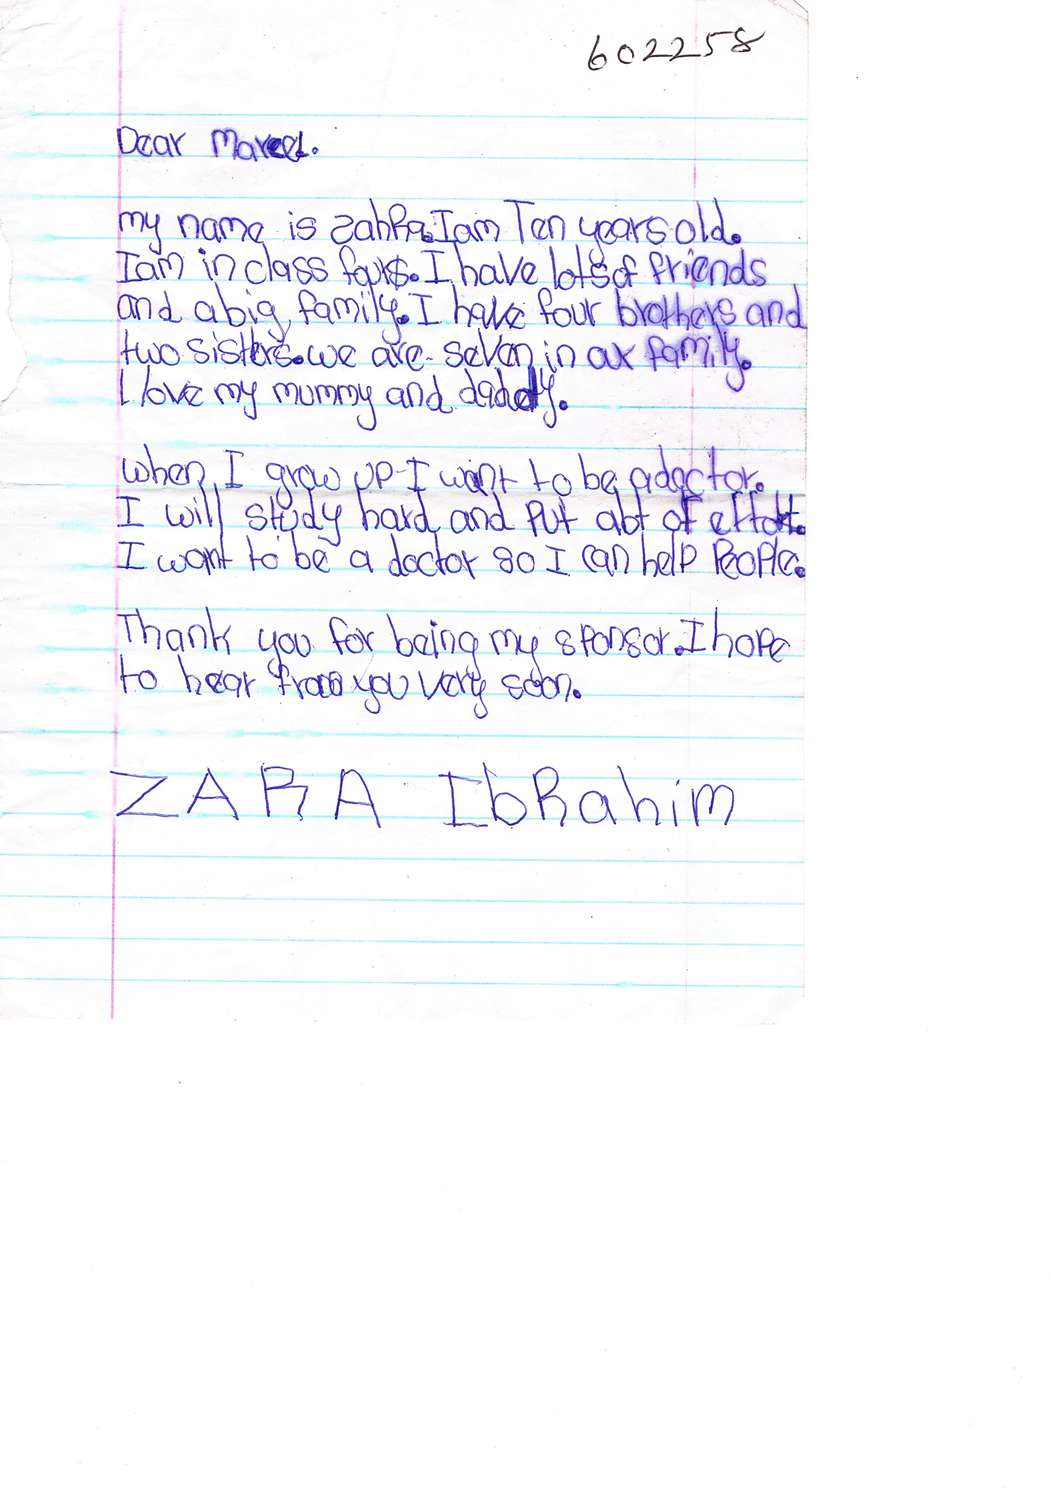 602258
Dear Marcel.
my name is zahRa. I am Ten years old.
I am in class fours. I have lots of friends
and a big family. I have four brothers and
two sisters. we are seven in our family.
I love my mummy and daddy.
when I grow up I want to be a doctor.
I will study hard and put alot of effort.
I want to be a doctor so I can help People.
Thank you for being my sponsor. I hope
to hear from you very soon.
ZARA IbRahim